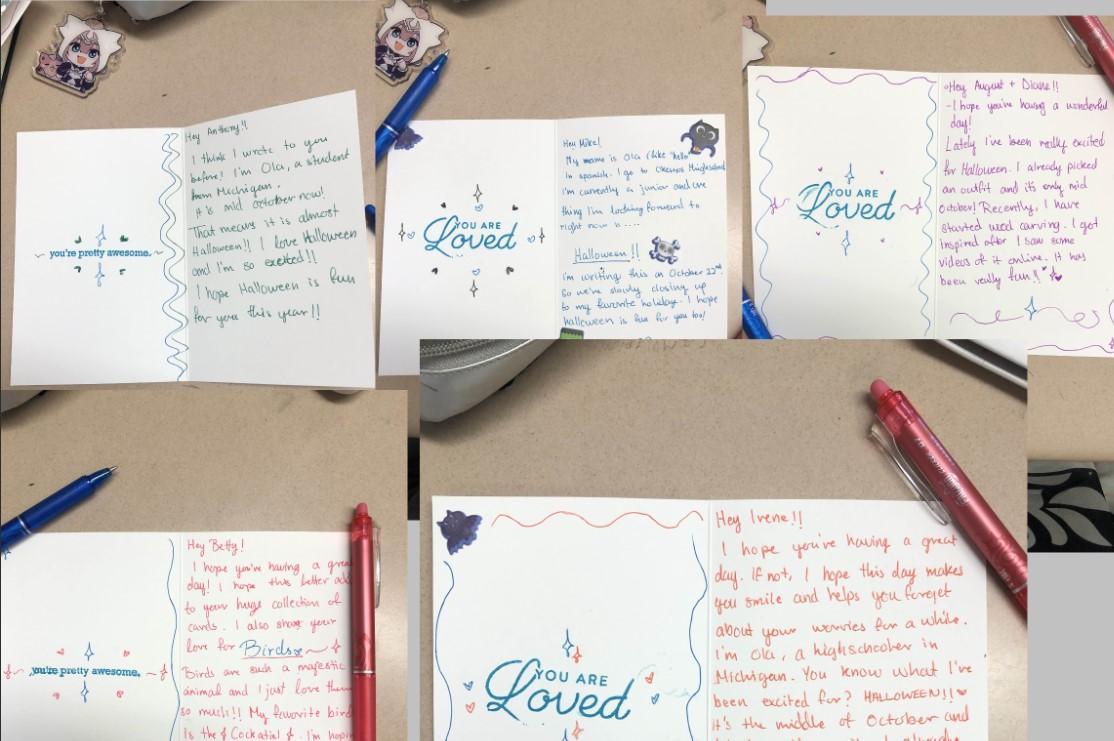 you're pretty awesome.
Hey Anthony!!
I think I wrote to you
before! I'm Ola, a student
from Michigan.
It is mid october now!
That means it is almost
Halloween!! I love Halloween
and I'm so excited!!
I hope Halloween is fun
for you this year!!
YOU ARE
Loved
Hey Mike!
My name is Ola (like "hello"
in spanish. I go to Okemos Highschool
I'm currently a junior and one
thing I'm looking forward to
right now is....
Halloween!!
I'm writing this on October 22nd
so we're slowly closing up
to my favorite holiday. I hope
halloween is fun for you too!
YOU ARE
Loved
Hey August + Diane!!
-I hope you're having a wonderful
day!
Lately I've been really excited
for Halloween. I already picked
an outfit and it's only mid
october! Recently, I have
started wood carving. I got
inspired after I saw some
videos of it online. It has
been really fun!!
you're pretty awesome.
Hey Betty!
I hope you're having a great
day! I hope this letter
to your huge collection of
cards. I also share your
love for Birds
Birds are such a majestic
animal and I just love them
so much!! My favorite bird
Is the Cockatiel. I'm
YOU ARE
Loved
Hey Irene!!
I hope you're having a great
day. If not, I hope this day makes
you smile and helps you forget
about your worries for a while.
I'm Ola, a highschooler in
Michigan. You know what I've
been excited for? HALLOWEEN!!
It's the middle of October and